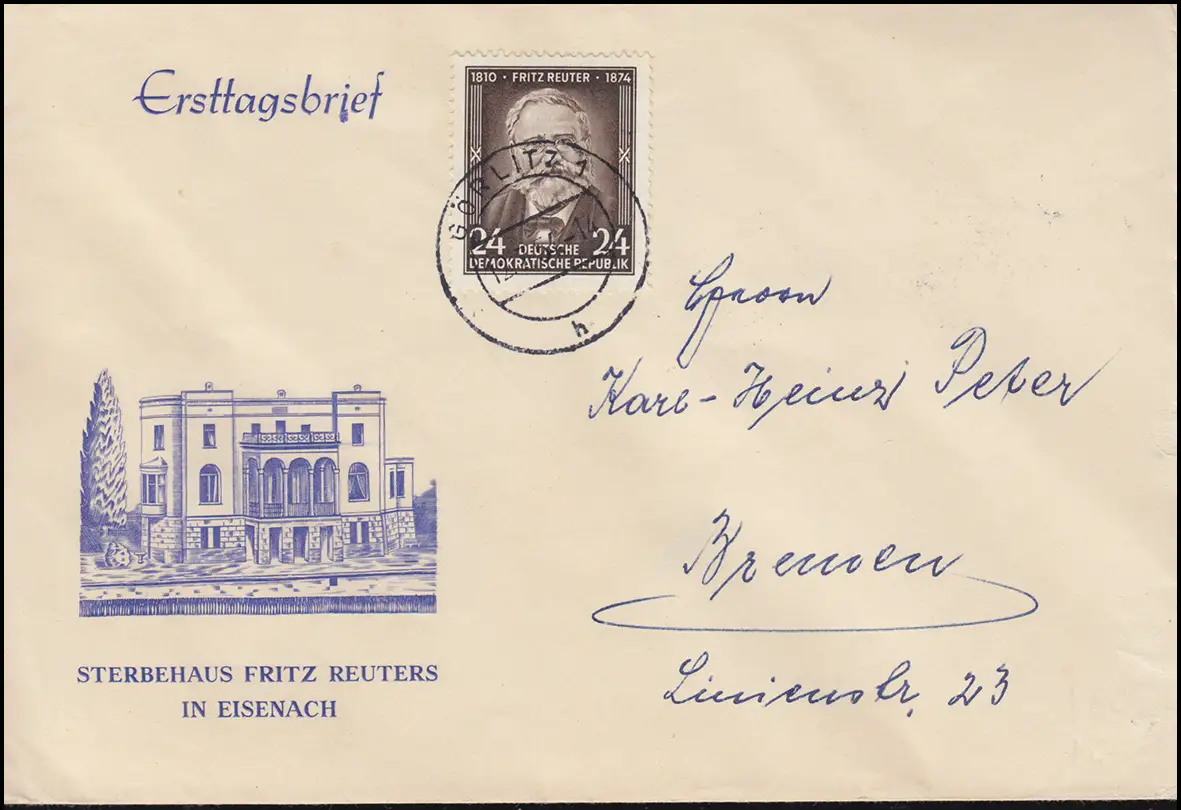 Ersttagsbrief
1810 · FRITZ REUTER · 1874
24 DEUTSCHE 24
DEMOKRATISCHE REPUBLIK
GÖRLITZ 1
h
Herrn
Karl-Heinz Peter
Bremen
Linienstr. 23
STERBEHAUS FRITZ REUTERS
IN EISENACH